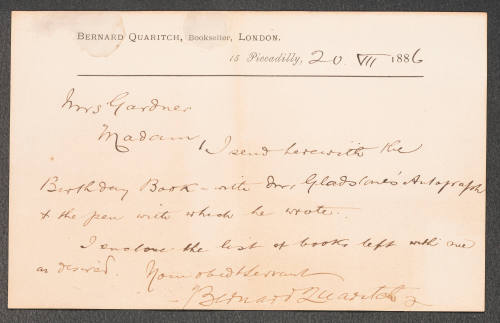 BERNARD QUARITCH, Bookseller, LONDON.
15 Piccadilly, 20 VII 1886
Mrs Gardner
Madam, I send herewith the
Birthday Book - with Mr Gladstone's Autograph
& the pen with which he wrote.
I enclose the list of books left with me
as desired. Your obedt Servant
Bernard Quaritch